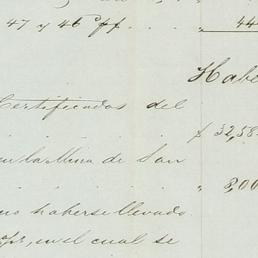 47 y 46 p% . . . " 44
Habe
Certificados del
. . . . . $ 32,58
en la Mina de San
. . . . . " 2,00
no haberse llevado
en el cual se